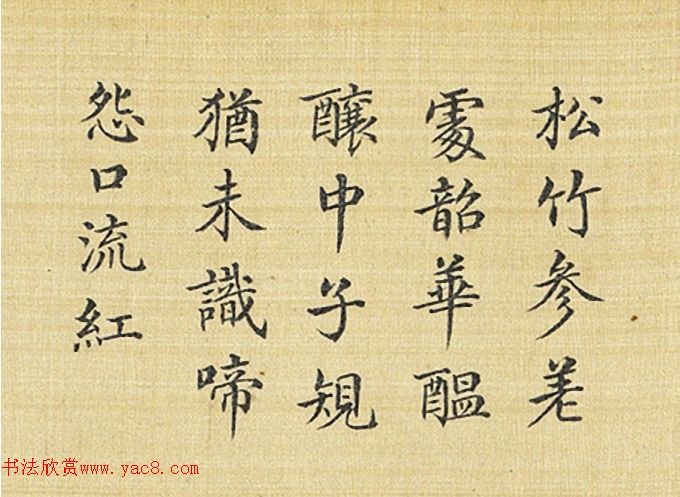 松竹參差
處韶華醞
釀中子規
猶未識啼
怨口流紅
书法欣赏www.yac8.com